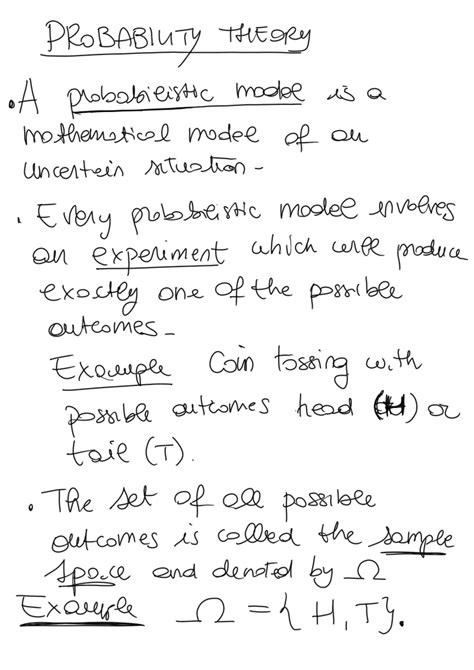 PROBABILITY THEORY
• A probabilistic model is a
mathematical model of an
uncertain situation -
• Every probabilistic model involves
an experiment which will produce
exactly one of the possible
outcomes -
Example Coin tossing with
possible outcomes head (H) or
tail (T).
• The set of all possible
outcomes is called the sample
space and denoted by Ω
Example Ω = { H, T }.